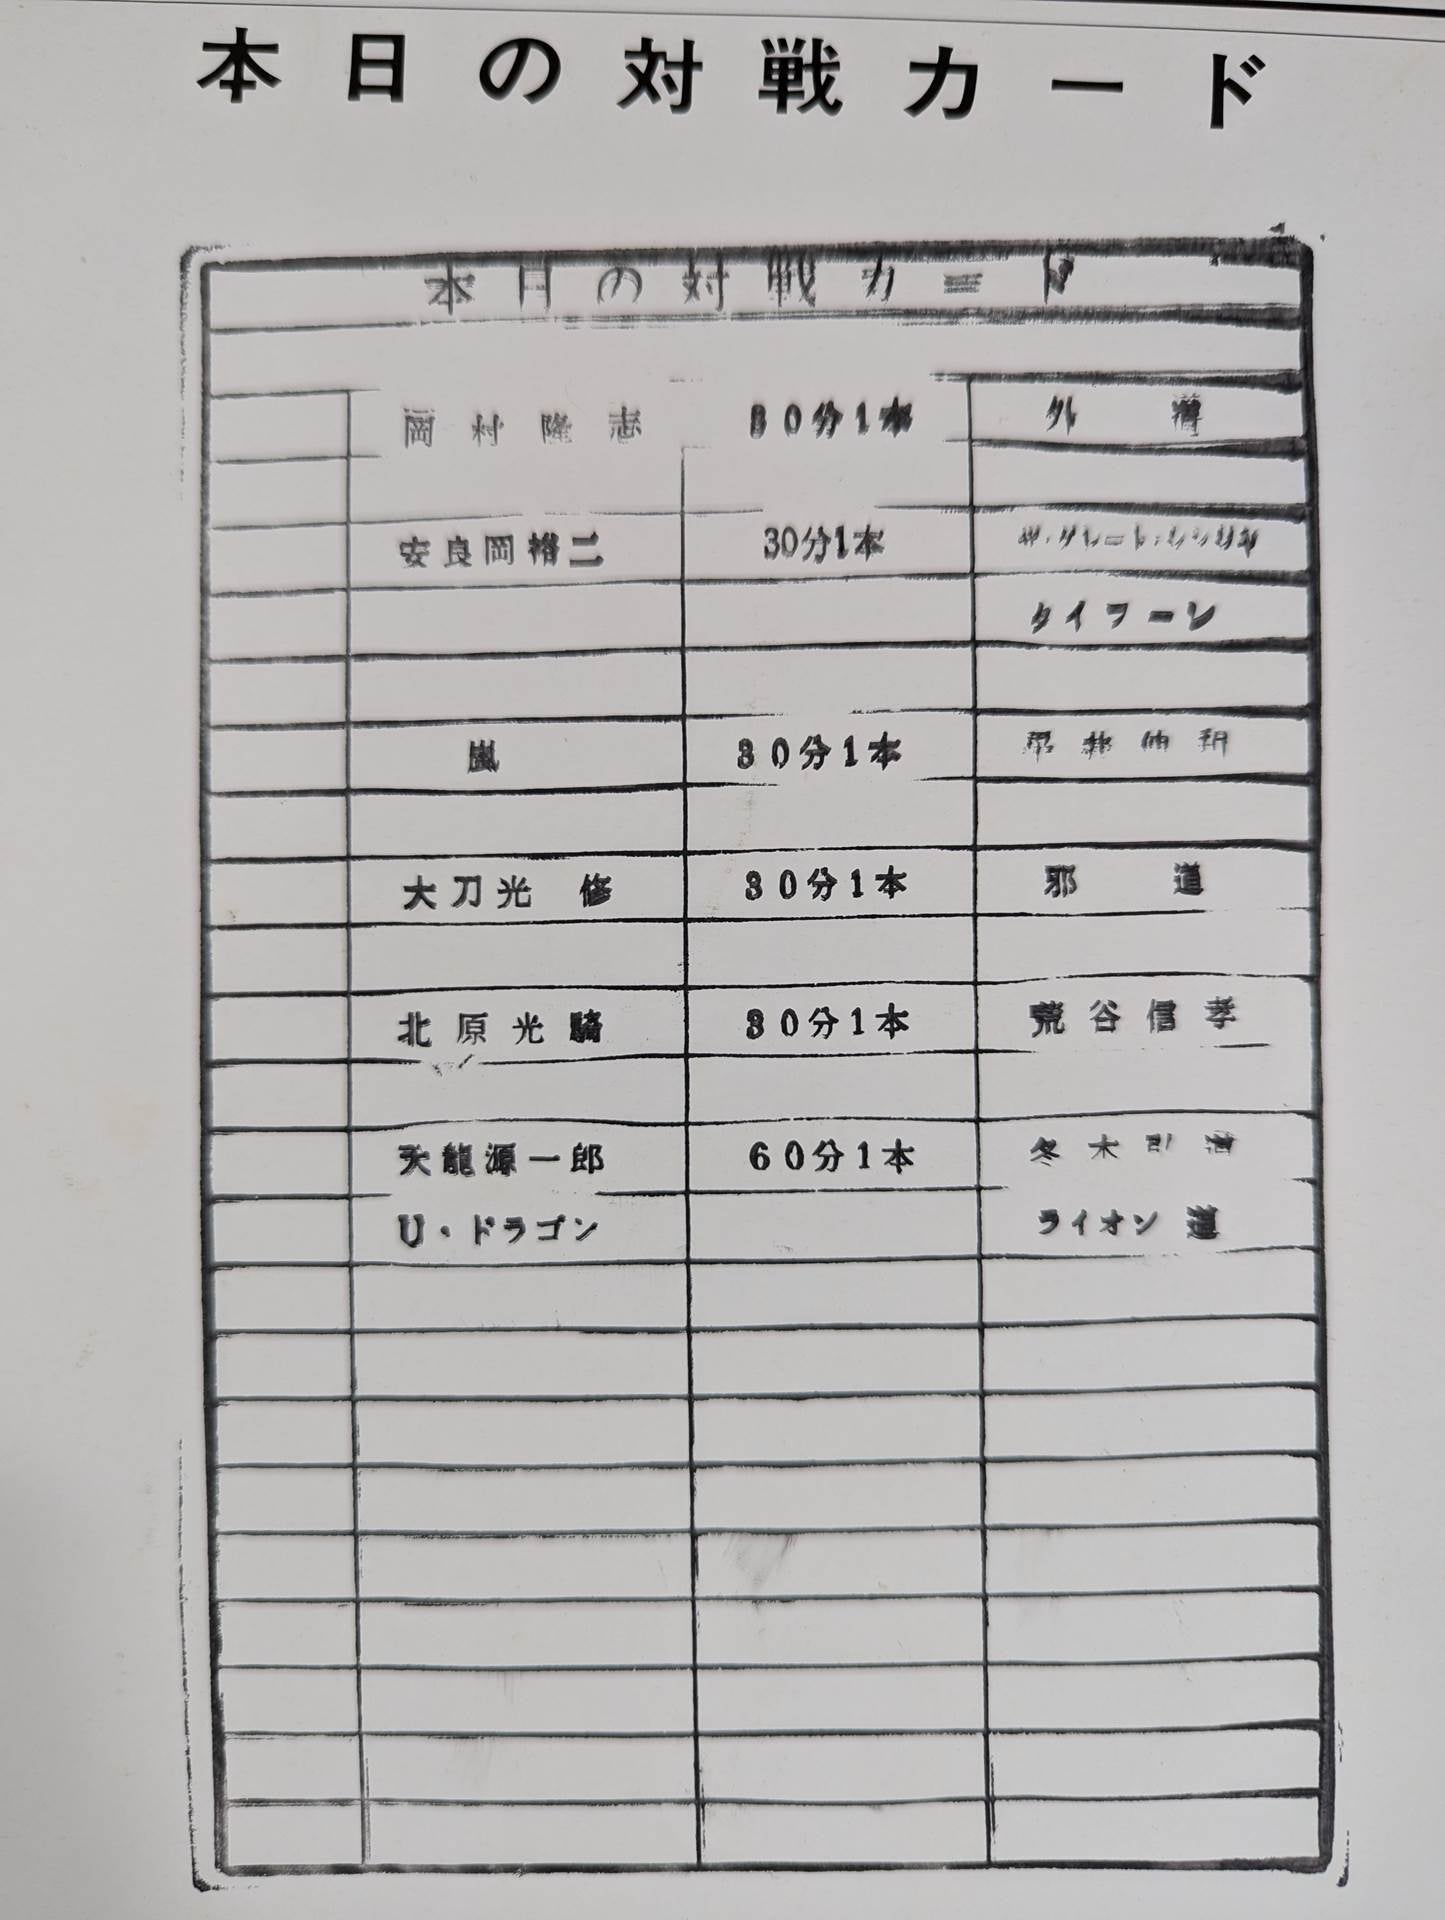 本日の対戦カード
本日の対戦カード
岡村隆志 30分1本 外道
安良岡裕二 30分1本 ザ・グレート・
タイフーン
嵐 30分1本 伸
大刀光 修 30分1本 邪道
北原光騎 30分1本 荒谷信孝
天龍源一郎 60分1本 冬木弘道
U・ドラゴン ライオン 道